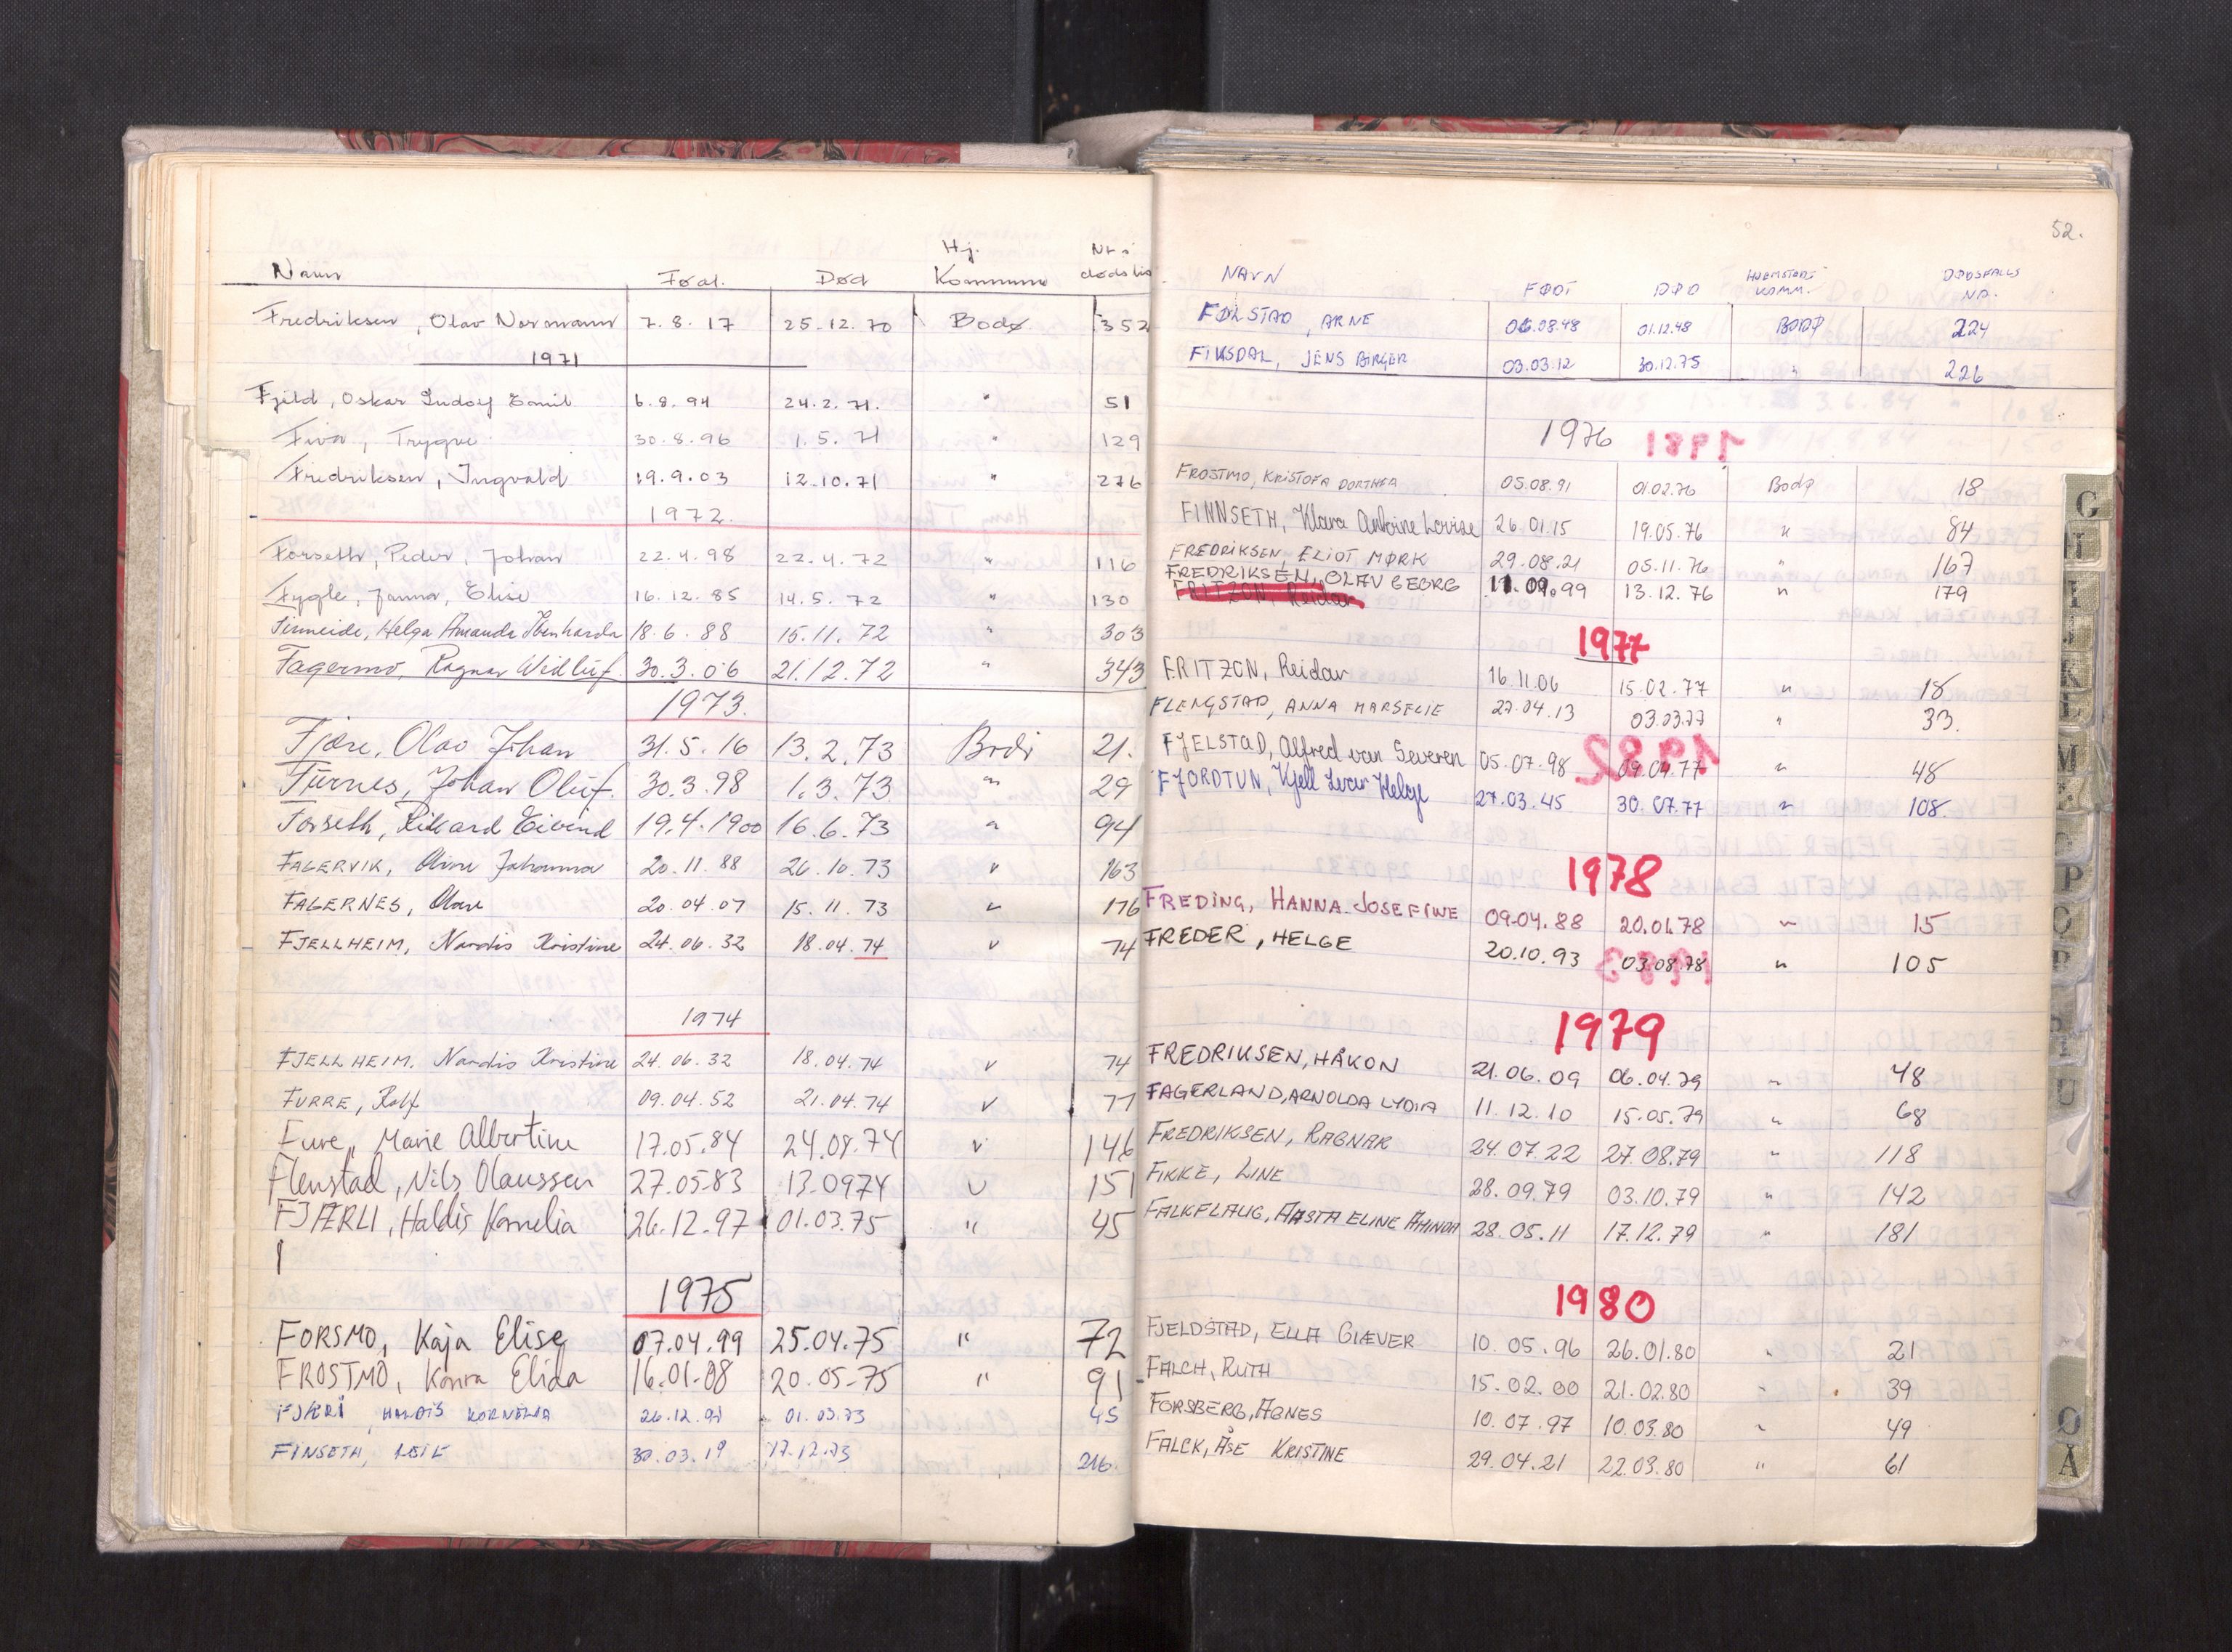 Navn Fød. Død Hj. Kommune Nr i dødslis
Fredriksen, Olav Normann 7.8.17 25.12.70 Bodø 352
1971
Fjeld, Oskar Ludolf Emil 6.8.94 24.2.71. " 51
Fiva, Trygve 30.8.96 1.5.71 " 129
Fredriksen, Ingvald 19.9.03 12.10.71 " 276
1972.
Forseth, Peder, Johan 22.4.98 22.4.72 " 116
Fygle, Janna, Elise 16.12.85 14.5.72 " 130
Finneide, Helga Amanda Ibenharda 18.6.88 15.11.72 " 303
Fagermo, Ragnar Widluf. 30.3.06 21.12.72 " 343
1973.
Fjære, Olav Johan 31.5.16 13.2.73 Bodø 21.
Furnes, Johan Oluf. 30.3.98 1.3.73 " 29
Forseth, Rikard Eivind 19.4.1900 16.6.73 " 94
FAGERVIK, Oline Johanna 20.11.88 26.10.73 " 163
FAGERNES, Olave 20.04.07 15.11.73 " 176
FJELLHEIM, Nardis Kristine 24.06.32 18.04.74 " 74
1974
FJELLHEIM, Nardis Kristine 24.06.32 18.04.74 " 74
FURRE, Rolf 09.04.52 21.04.74 " 77
Fure, Marie Albertine 17.05.84 24.08.74 " 146
Flenstad, Nils Olaussen 27.05.83 13.09 74 " 151
FJÆRLI, Haldis Kornelia 26.12.97 01.03.75 " 45
1975
FORSMO, Kaja Elise 07.04.99 25.04.75 " 72
FROSTMO, Konra Elida 16.01-08 20.05-75 " 91
FJÆRI, HALDIS KORNELIA 26.12.97 01.03.73 45
FINSETH, LEIF 30.03.19 17.12.73 216
52.
NAVN FØDT DØD HJEMSTEDS KOMM. DØDSFALLS NR.
FØLSTAD, ARNE 06.08.48 01.12.48 BODØ 224
FIKSDAL, JENS BIRGER 03.03.12 30.12.75 " 226
1976
FROSTMO, KRISTOFA DORTHEA 05.08.91 01.02.76 Bodø 18
FINNSETH, Klara Antoine Lovise 26.01.15 19.05.76 " 84
FREDRIKSEN, ELIOT MØRK 29.08.21 05.11.76 " 167
FREDRIKSEN, OLAV GEORG 11.09.99 13.12.76 " 179
FRITZON, Reidar
1977
FRITZON, Reidar 16.11.06 15.02.77 " 18
FLENGSTAD, ANNA MARSELIE 27.04.13 03.03.77 " 33.
FJELSTAD, Alfred van Severen 05.07.98 09.04.77 " 48
FJORDTUN, Kjell Ivar Helge 27.03.45 30.07.77 " 108.
1978
FREDING, HANNA JOSEFINE 09.04.88 20.01.78 " 15
FREDER, HELGE 20.10.93 03.08.78 " 105
1979
FREDRIKSEN, HÅKON 21.06.09 06.04.79 " 48
FAGERLAND, ARNOLDA LYDIA 11.12.10 15.05.79 " 68
FREDRIKSEN, RAGNAR 24.07.22 27.08.79 " 118
FIKKE, LINE 28.09.79 03.10.79 " 142
FALKFLAUG, AASTA ELINE AMINDA 28.05.11 17.12.79 " 181
1980
FJELDSTAD, ELLA GIÆVER 10.05.96 26.01.80 " 21
FALCH, RUTH 15.02.00 21.02.80 " 39
FORSBERG, AGNES 10.07.97 10.03.80 " 49
FALCK, ÅSE KRISTINE 29.04.21 22.03.80 " 61
G
H
I
J
K
L
M
P
O
U
Ø
Å